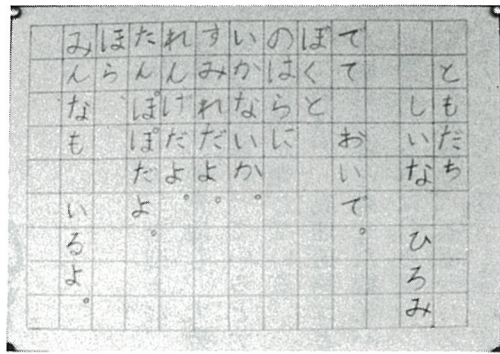 ともだち
しいな ひろみ
でて おいで。
ぼくと
のはらに
いかないか。
すみれだよ。
れんげだよ。
たんぽぽだよ。
ほら
みんなも いるよ。